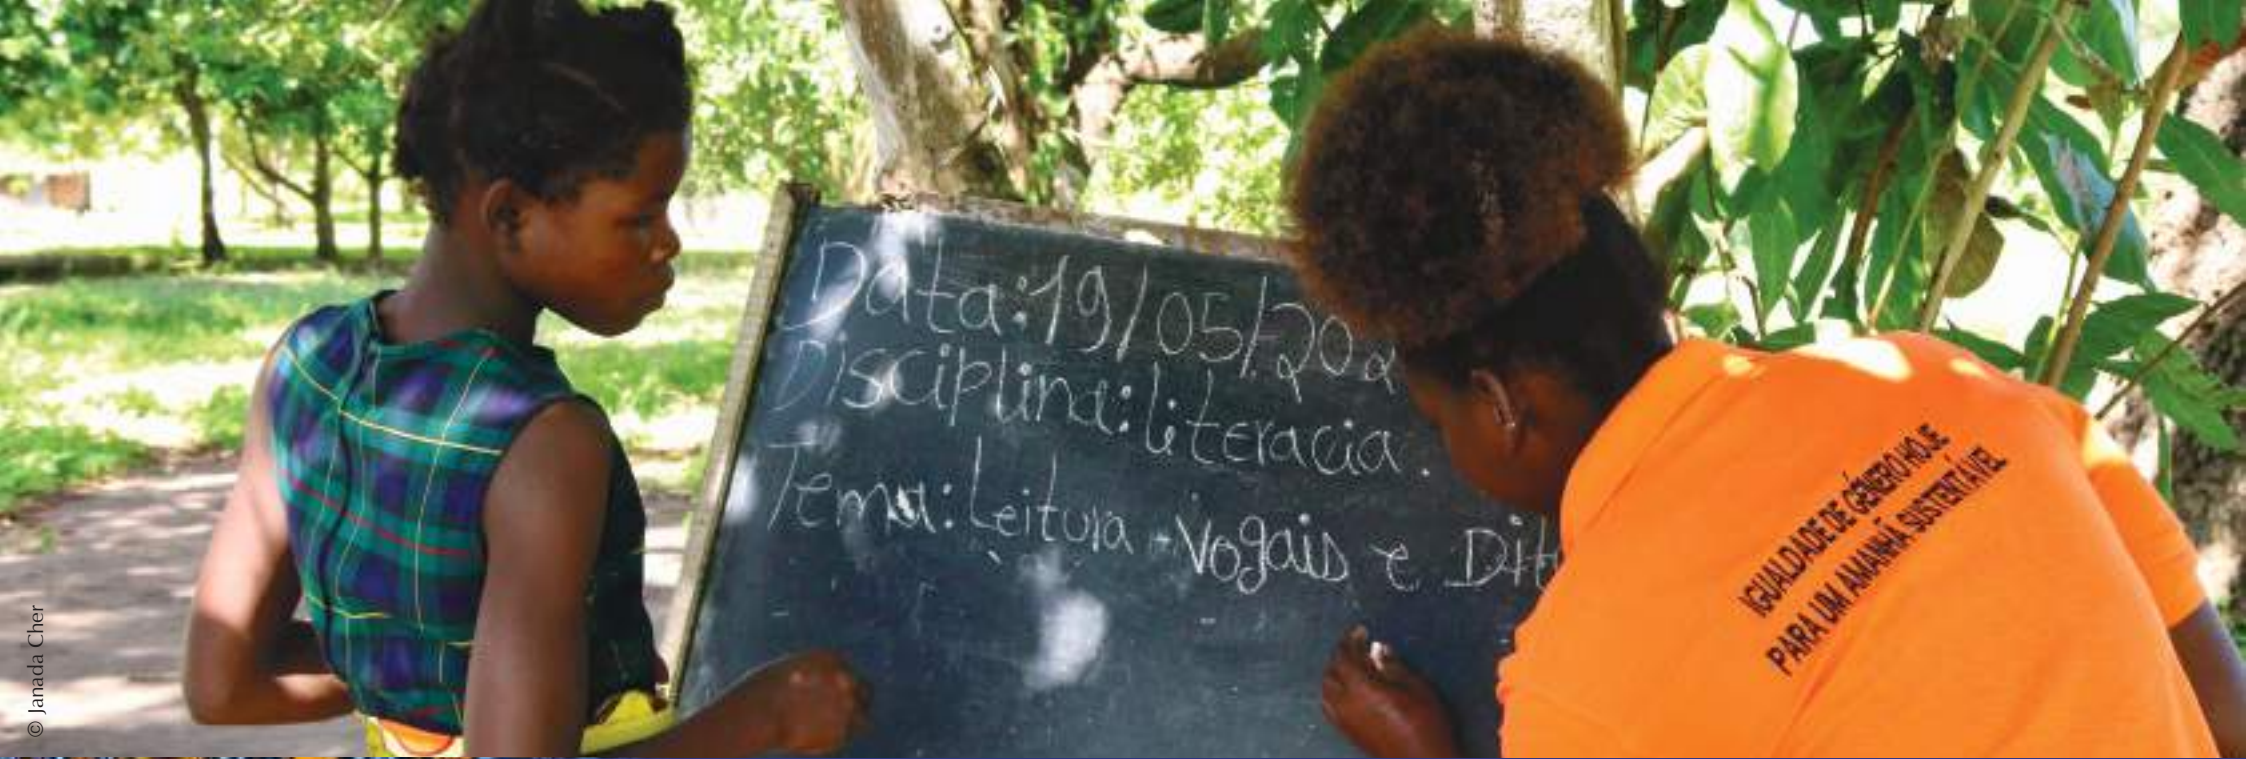 Data: 19/05/202
Disciplina: literacia.
Tema: Leitura - Vogais e Dit
IGUALDADE DE GÉNERO HOJE
PARA UM AMANHÃ SUSTENTÁVEL
© Janada Cher